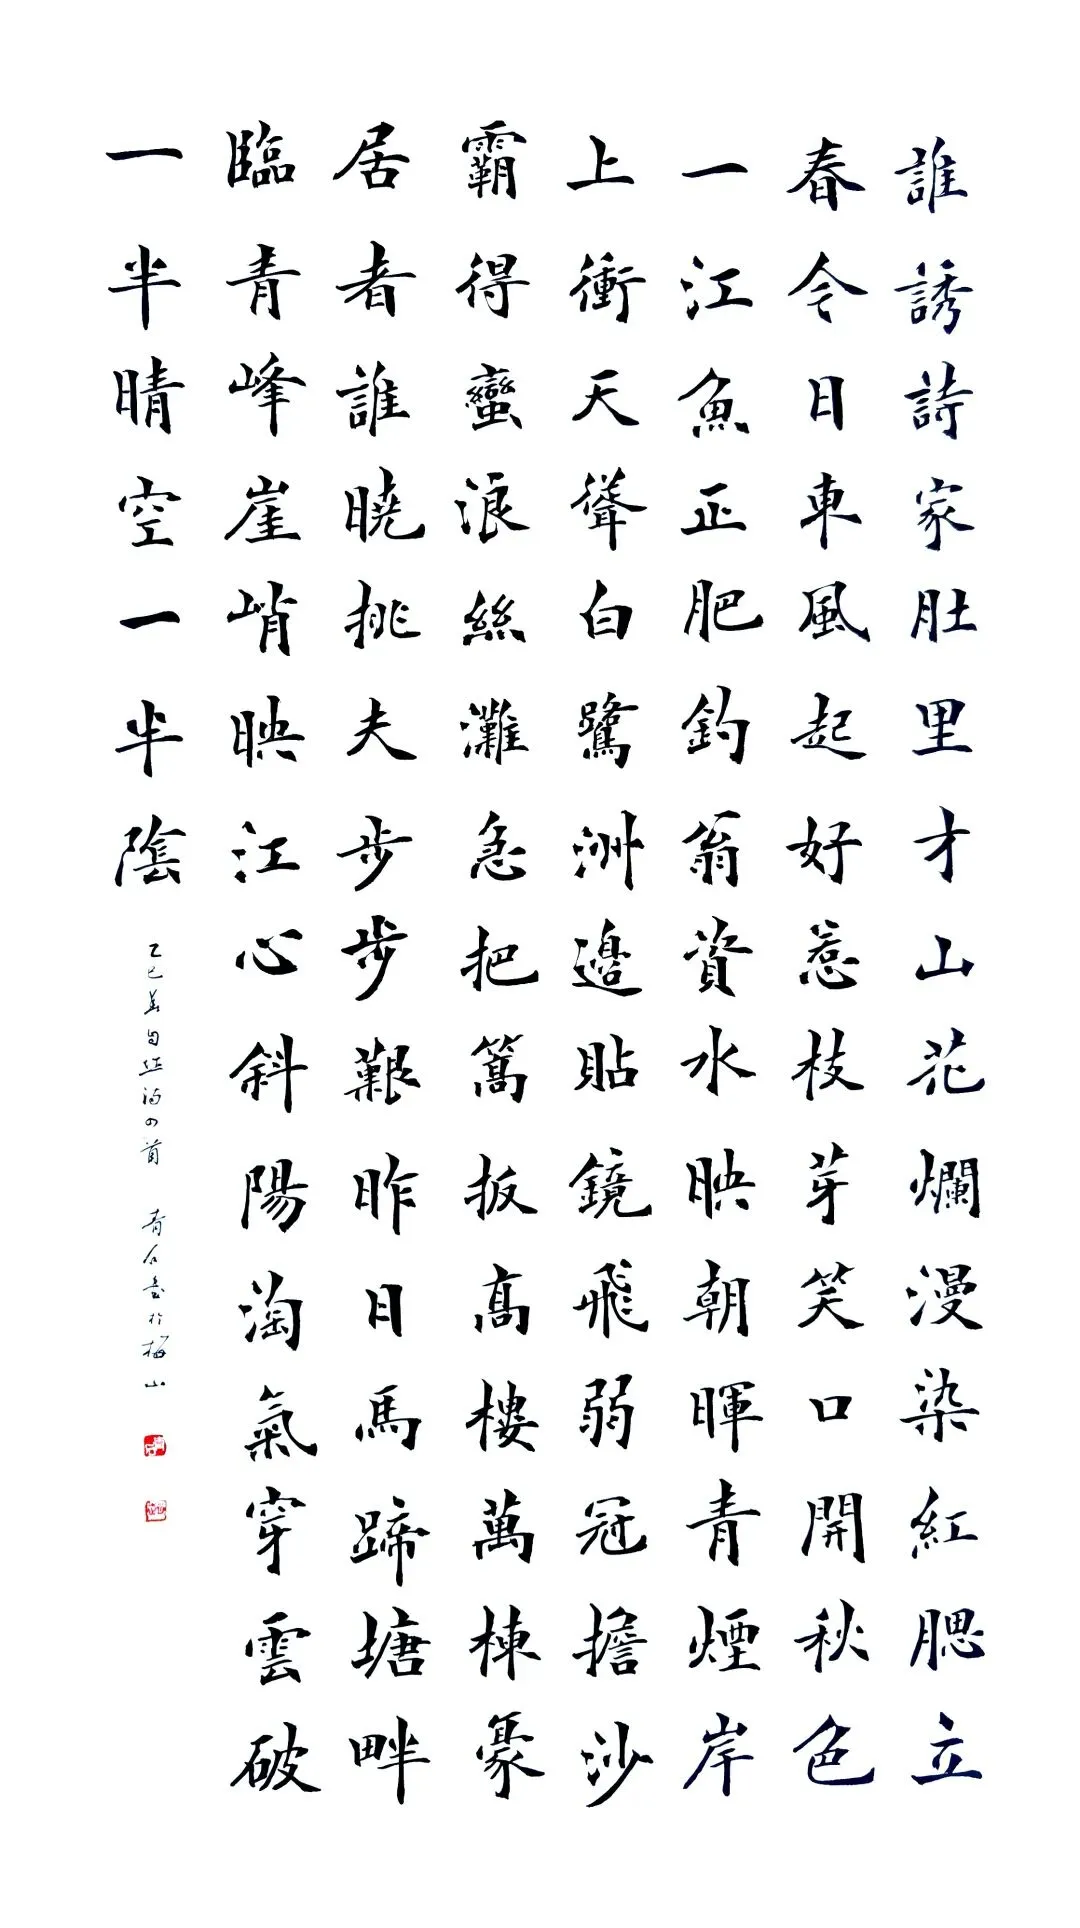 誰誘詩家肚里才山花爛漫染紅腮立
春今日東風起好惹枝芽笑口開秋色
一江魚正肥釣翁資水映朝暉青煙岸
上衝天聳白鷺洲邊貼鏡飛弱冠擔沙
霸得蠻浪絲灘急把篙扳高樓萬棟豪
居者誰曉挑夫步步艱昨日馬蹄塘畔
臨青峰崖峭映江心斜陽淘氣穿雲破
一半晴空一半陰
乙巳
自
首
青石書於梅山